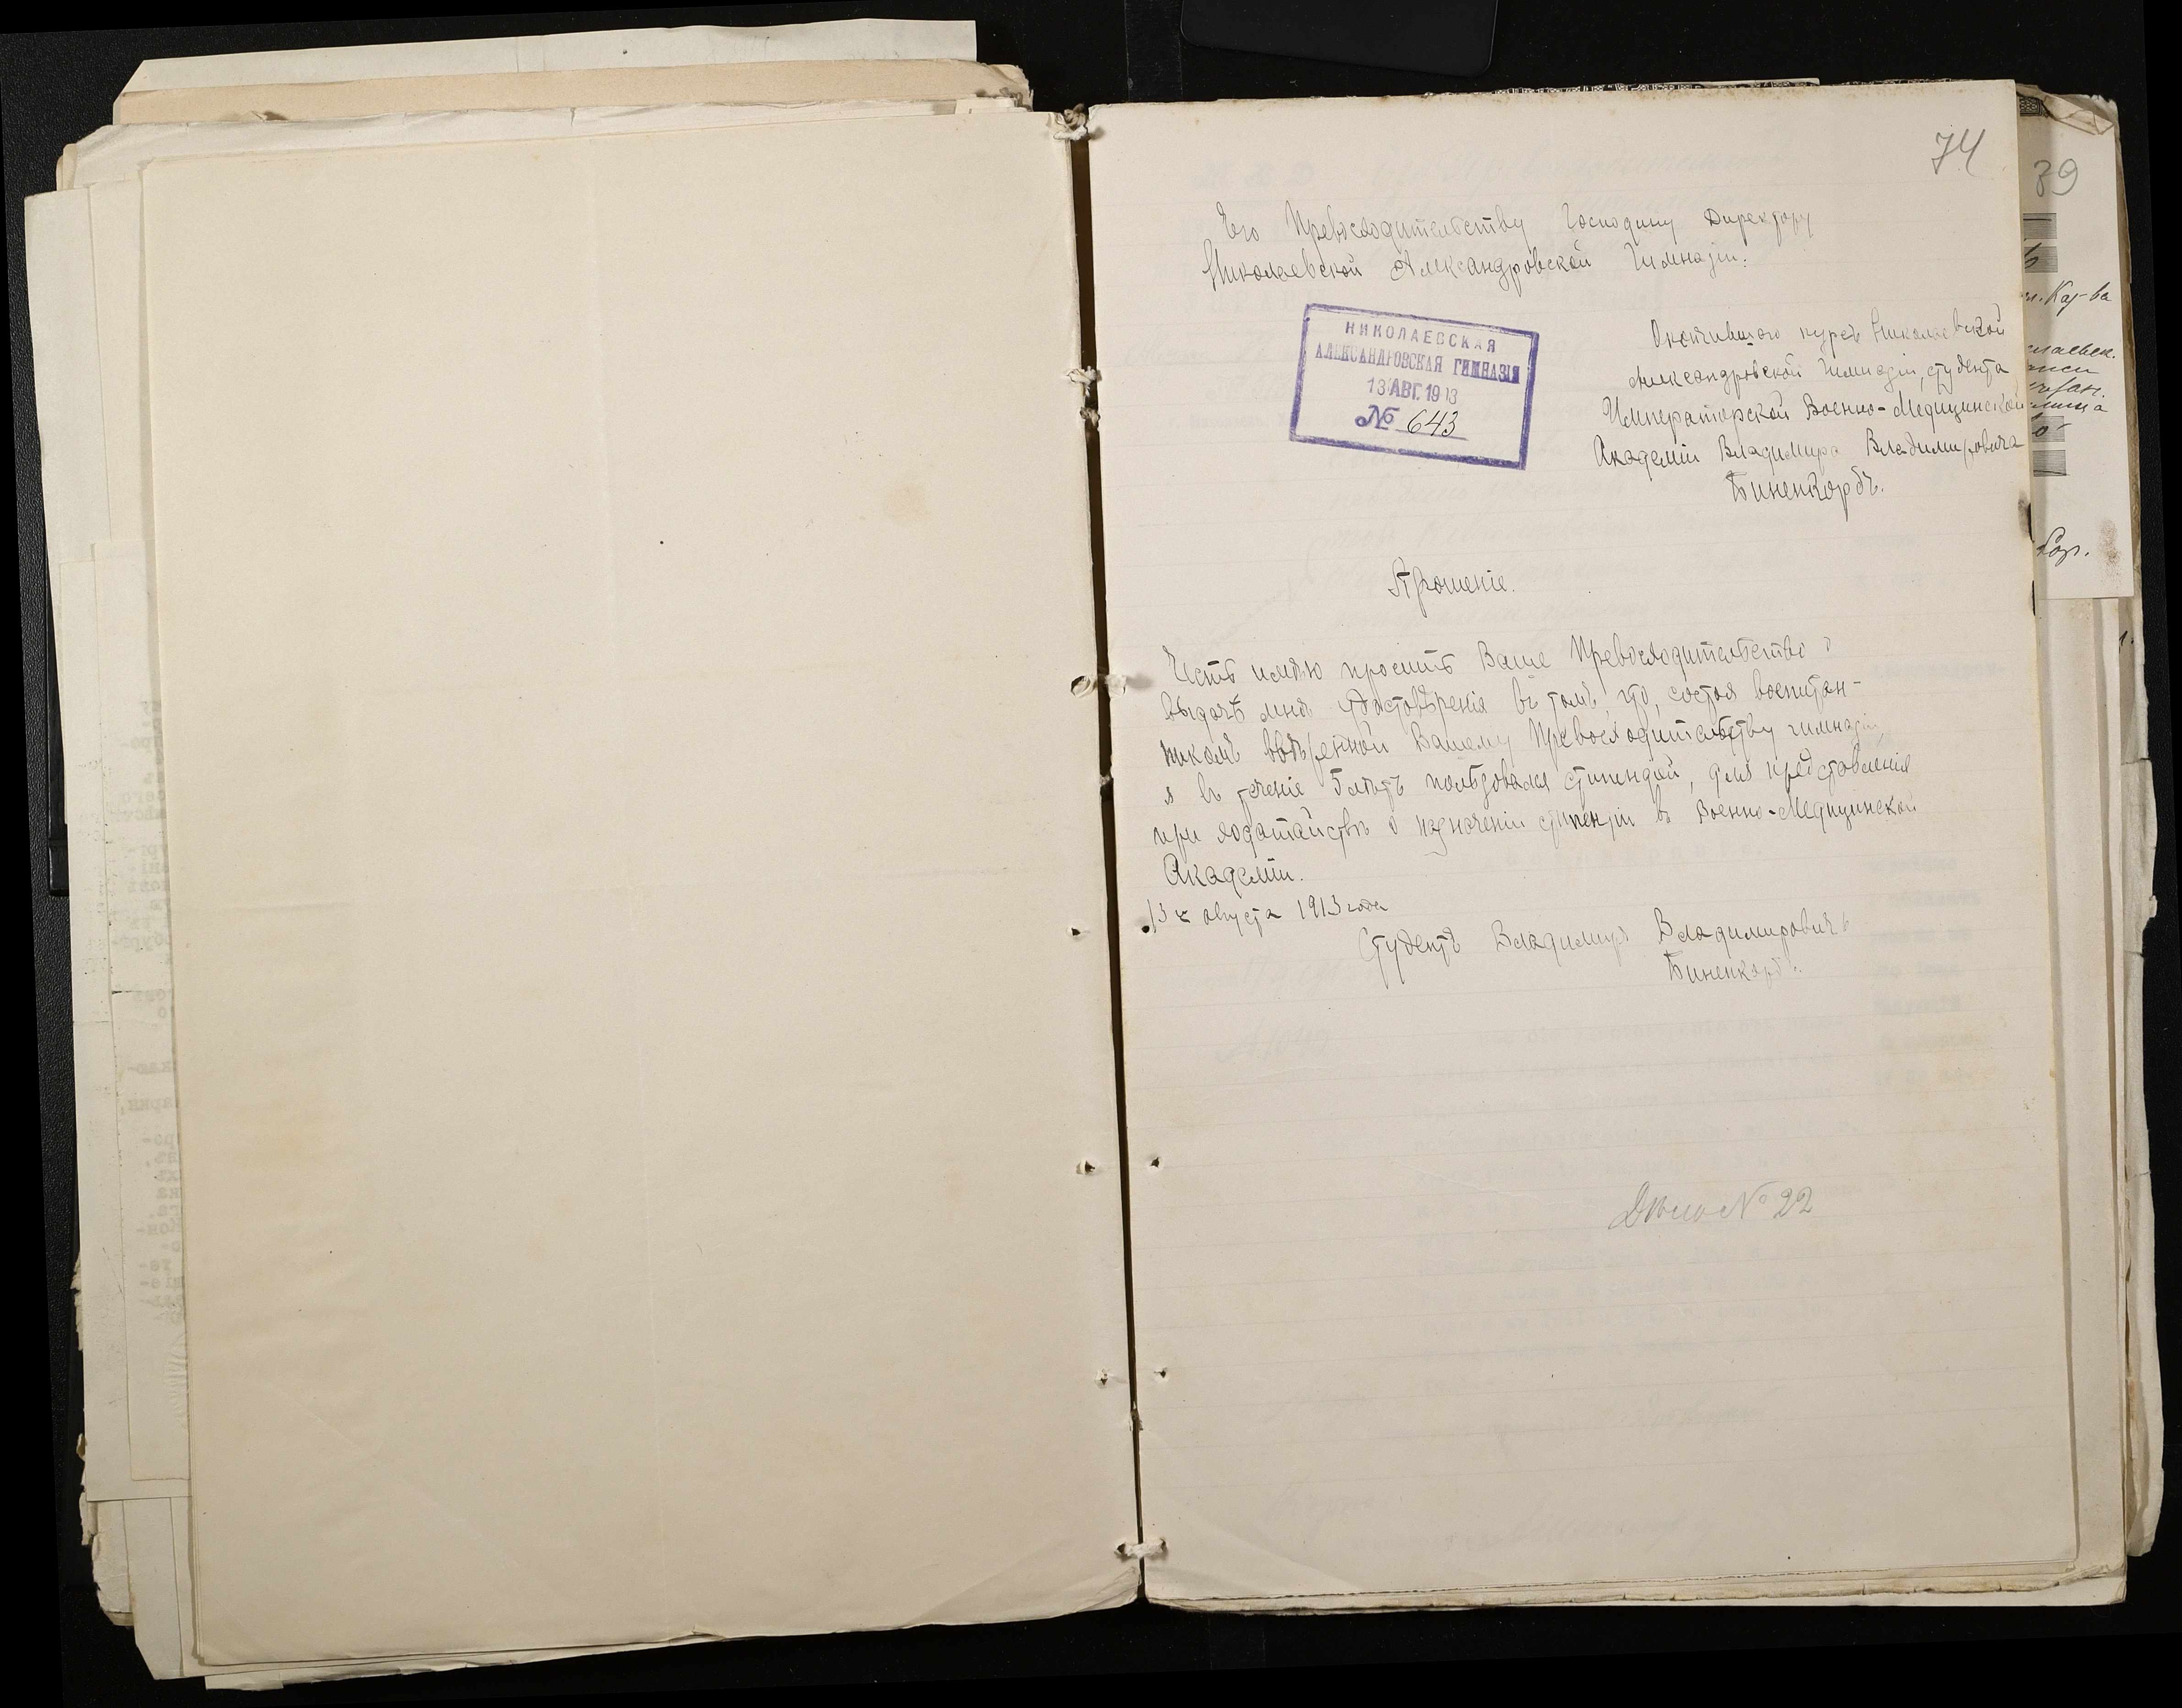 74
39
Его Превосходительству Господину Директору
Николаевской Александровской Гимназіи.
НИКОЛАЕВСКАЯ
АЛЕКСАНДРОВСКАЯ ГИМНАЗІЯ
13 АВГ. 1913
№ 643
Окончившаго курсъ Николаевской
Александровской Гимназіи, студента
Императорской Военно-Медицинской
Академіи Владимира Владимировича
Биненкорбъ.
Прошеніе.
Честь имѣю просить Ваше Превосходительство о
выдачѣ мнѣ удостовѣренія въ томъ, что, состоя воспитан-
никомъ ввѣренной Вашему Превосходительству гимназіи,
я въ теченіе 5 лѣтъ пользовался стипендіей, для представленія
при ходатайствѣ о назначеніи стипендіи въ Военно-Медицинской
Академіи.
13 августа 1913 года
Студентъ Владимиръ Владимировичъ
Биненкорбъ.
Дѣло № 22